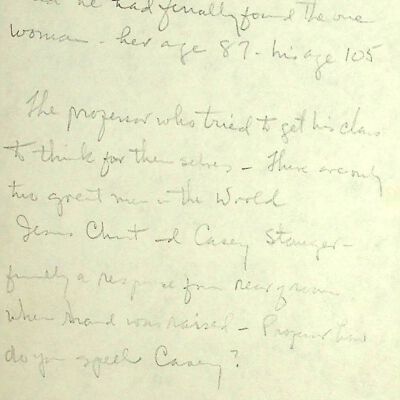 he had finally found the one
woman - her age 87 - his age 105
The professor who tried to get his class
to think for themselves - There are only
two great men in the World
Jesus Christ and Casey Stenger -
finally a response from rear of room
when hand was raised - Professor how
do you spell Casey?